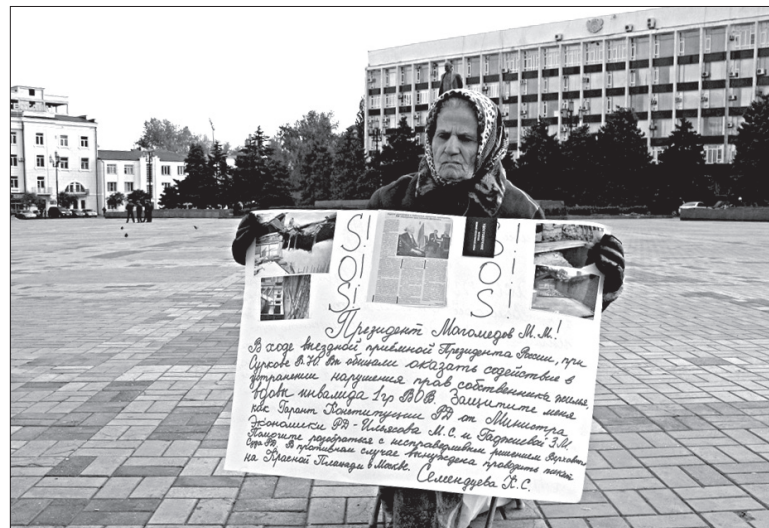 S!
O!
S!
S!
O!
S!
Президент Магомедов М.М.!
В ходе выездной приёмной Президента России, при
Суркове В.Ю. Вы обещали оказать содействие в
устранении нарушения прав собственника жилья,
вдовы инвалида 1гр ВОВ. Защитите меня
как Гарант Конституции РД от Министра
Экономики РД - Ильясова М.С. и Гаджиевой З.М.
Помогите разобраться с несправедливым решением Верховн
Суда РД. В противном случае вынуждена проводить пикет
на Красной Площади в Москве. Семендуева Х.С.